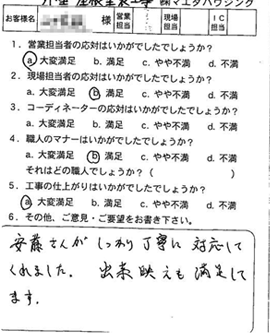 外壁・屋根塗装工事 ㈱マエダハウジング
お客様名 様 営業担当 現場担当 I C 担当
1. 営業担当者の応対はいかがでしたでしょうか？
a. 大変満足 b. 満足 c. やや不満 d. 不満
2. 現場担当者の応対はいかがでしたでしょうか？
a. 大変満足 b. 満足 c. やや不満 d. 不満
3. コーディネーターの応対はいかがでしたでしょうか？
a. 大変満足 b. 満足 c. やや不満 d. 不満
4. 職人のマナーはいかがでしたでしょうか？
a. 大変満足 b. 満足 c. やや不満 d. 不満
それはどの職人でしょうか？（ ）
5. 工事の仕上がりはいかがでしたでしょうか？
a. 大変満足 b. 満足 c. やや不満 d. 不満
6. その他、ご意見・ご要望をお書き下さい。
安藤さんが しっかり丁寧に 対応して
くれました。 出来映えも満足して
ます.